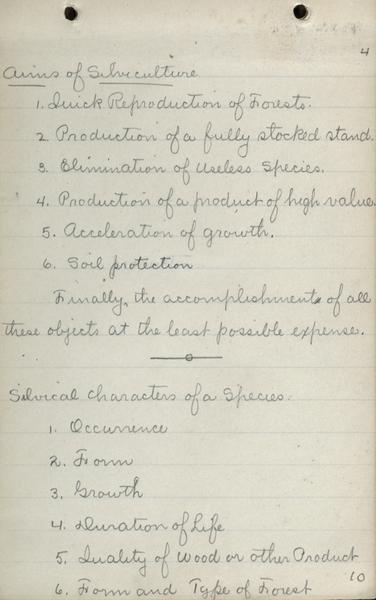 4
Aims of Silviculture
1. Quick Reproduction of Forests.
2. Production of a fully stocked stand.
3. Elimination of Useless Species.
4. Production of a product of high value.
5. Acceleration of growth.
6. Soil protection
Finally, the accomplishment of all
these objects at the least possible expense.
Silvical Characters of a Species.
1. Occurrence
2. Form
3. Growth
4. Duration of Life
5. Quality of Wood or other Product
6. Form and Type of Forest
10